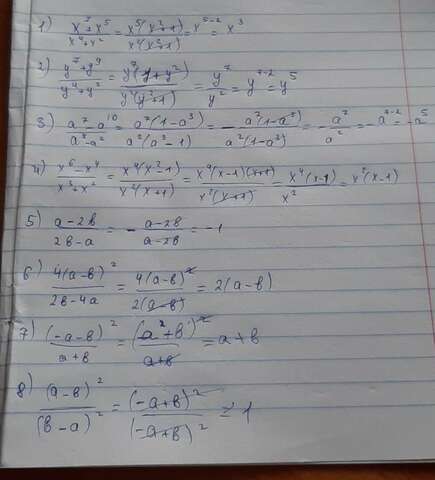 1) (x⁷+x⁵)/(x⁴+x²) = x⁵(x²+1)/x²(x²+1) = x⁵⁻² = x³
2) (y⁷+y⁹)/(y⁴+y²) = y⁷(1+y²)/y²(y²+1) = y⁷/y² = y⁷⁻² = y⁵
3) (a⁷-a¹⁰)/(a⁵-a²) = a⁷(1-a³)/a²(a³-1) = -a⁷(1-a³)/a²(1-a³) = -a⁷/a² = -a⁷⁻² = -a⁵
4) (x⁶-x⁴)/(x³+x²) = x⁴(x²-1)/x²(x+1) = x⁴(x-1)(x+1)/x²(x+1) = x⁴(x-1)/x² = x²(x-1)
5) (a-2b)/(2b-a) = -(a-2b)/(a-2b) = -1
6) 4(a-b)²/(2b-4a) = 4(a-b)²/2(a-b) = 2(a-b)
7) (-a-b)²/(a+b) = (a²+b)²/(a+b) = a+b
8) (a-b)²/(b-a)² = (-a+b)²/(-a+b)² = 1